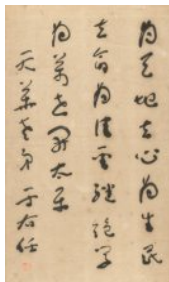 為天地立心為生民
立命為往聖繼絕學
為萬世開太平
于右任